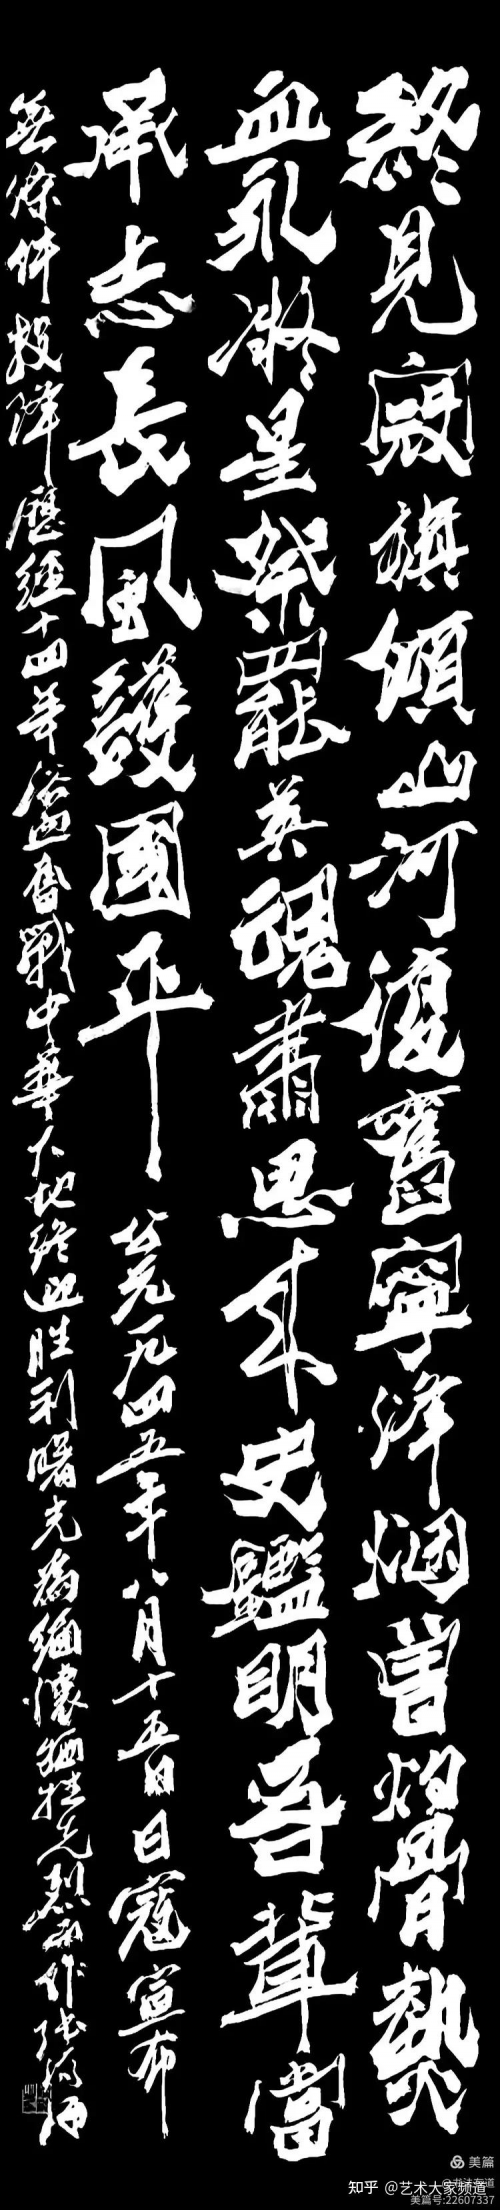 終見寇旗傾山河復舊寧烽烟曾灼骨熱
血永凝星祭罷英魂肅思來史鑑明吾輩當
承志長風護國平
公元一九四五年八月十五日日寇宣布
無條件投降歷經十四年浴血奮戰中華大地終迎胜利曙光為緬懷牺牲先烈而作張
美篇
知乎 @艺术大家频道
美篇号:22607337